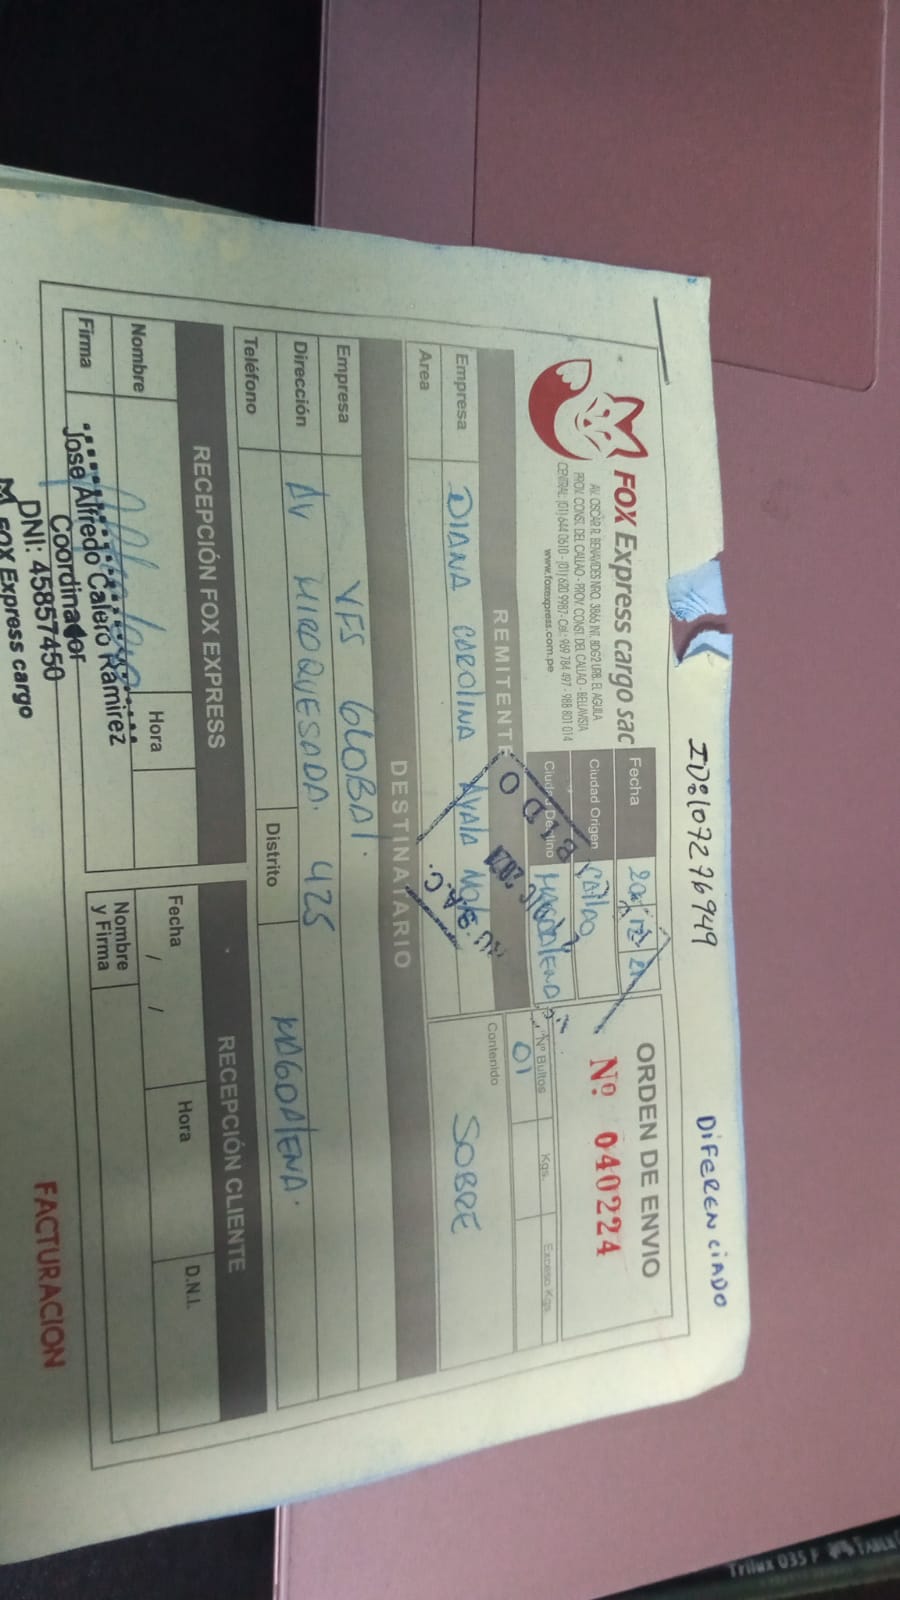 ID:107276949 DiFERENCiADO
FOX Express cargo sac
AV. OSCAR R. BENAVIDES NRO. 3866 INT. BDG2 URB. EL AGUILA
PROV. CONST. DEL CALLAO - PROV. CONST. DEL CALLAO - BELLAVISTA
CENTRAL: (01) 644 0610 - (01) 620 9987 - Cel.: 969 784 497 - 988 801 014
www.foxexpress.com.pe
Fecha
Ciudad Origen CAllAO
Ciudad Destino
ORDEN DE ENVIO
Nº 040224
Nº Bultos Kgs. Exceso Kgs.
01
REMITENTE
Empresa DIANA CAROLINA AYALA
Area
Contenido SOBRE
DESTINATARIO
Empresa VFS GLOBAL.
Dirección AV MIROQUESADA. 425
Teléfono Distrito MAGDALENA.
RECEPCIÓN FOX EXPRESS
Nombre Hora
Firma
Jose Alfredo Calero Ramirez
Coordinador
DNI: 45857450
FOX Express cargo
RECEPCIÓN CLIENTE
Fecha / / Hora D.N.I.
Nombre
y Firma
FACTURACION
Trilux 035 F